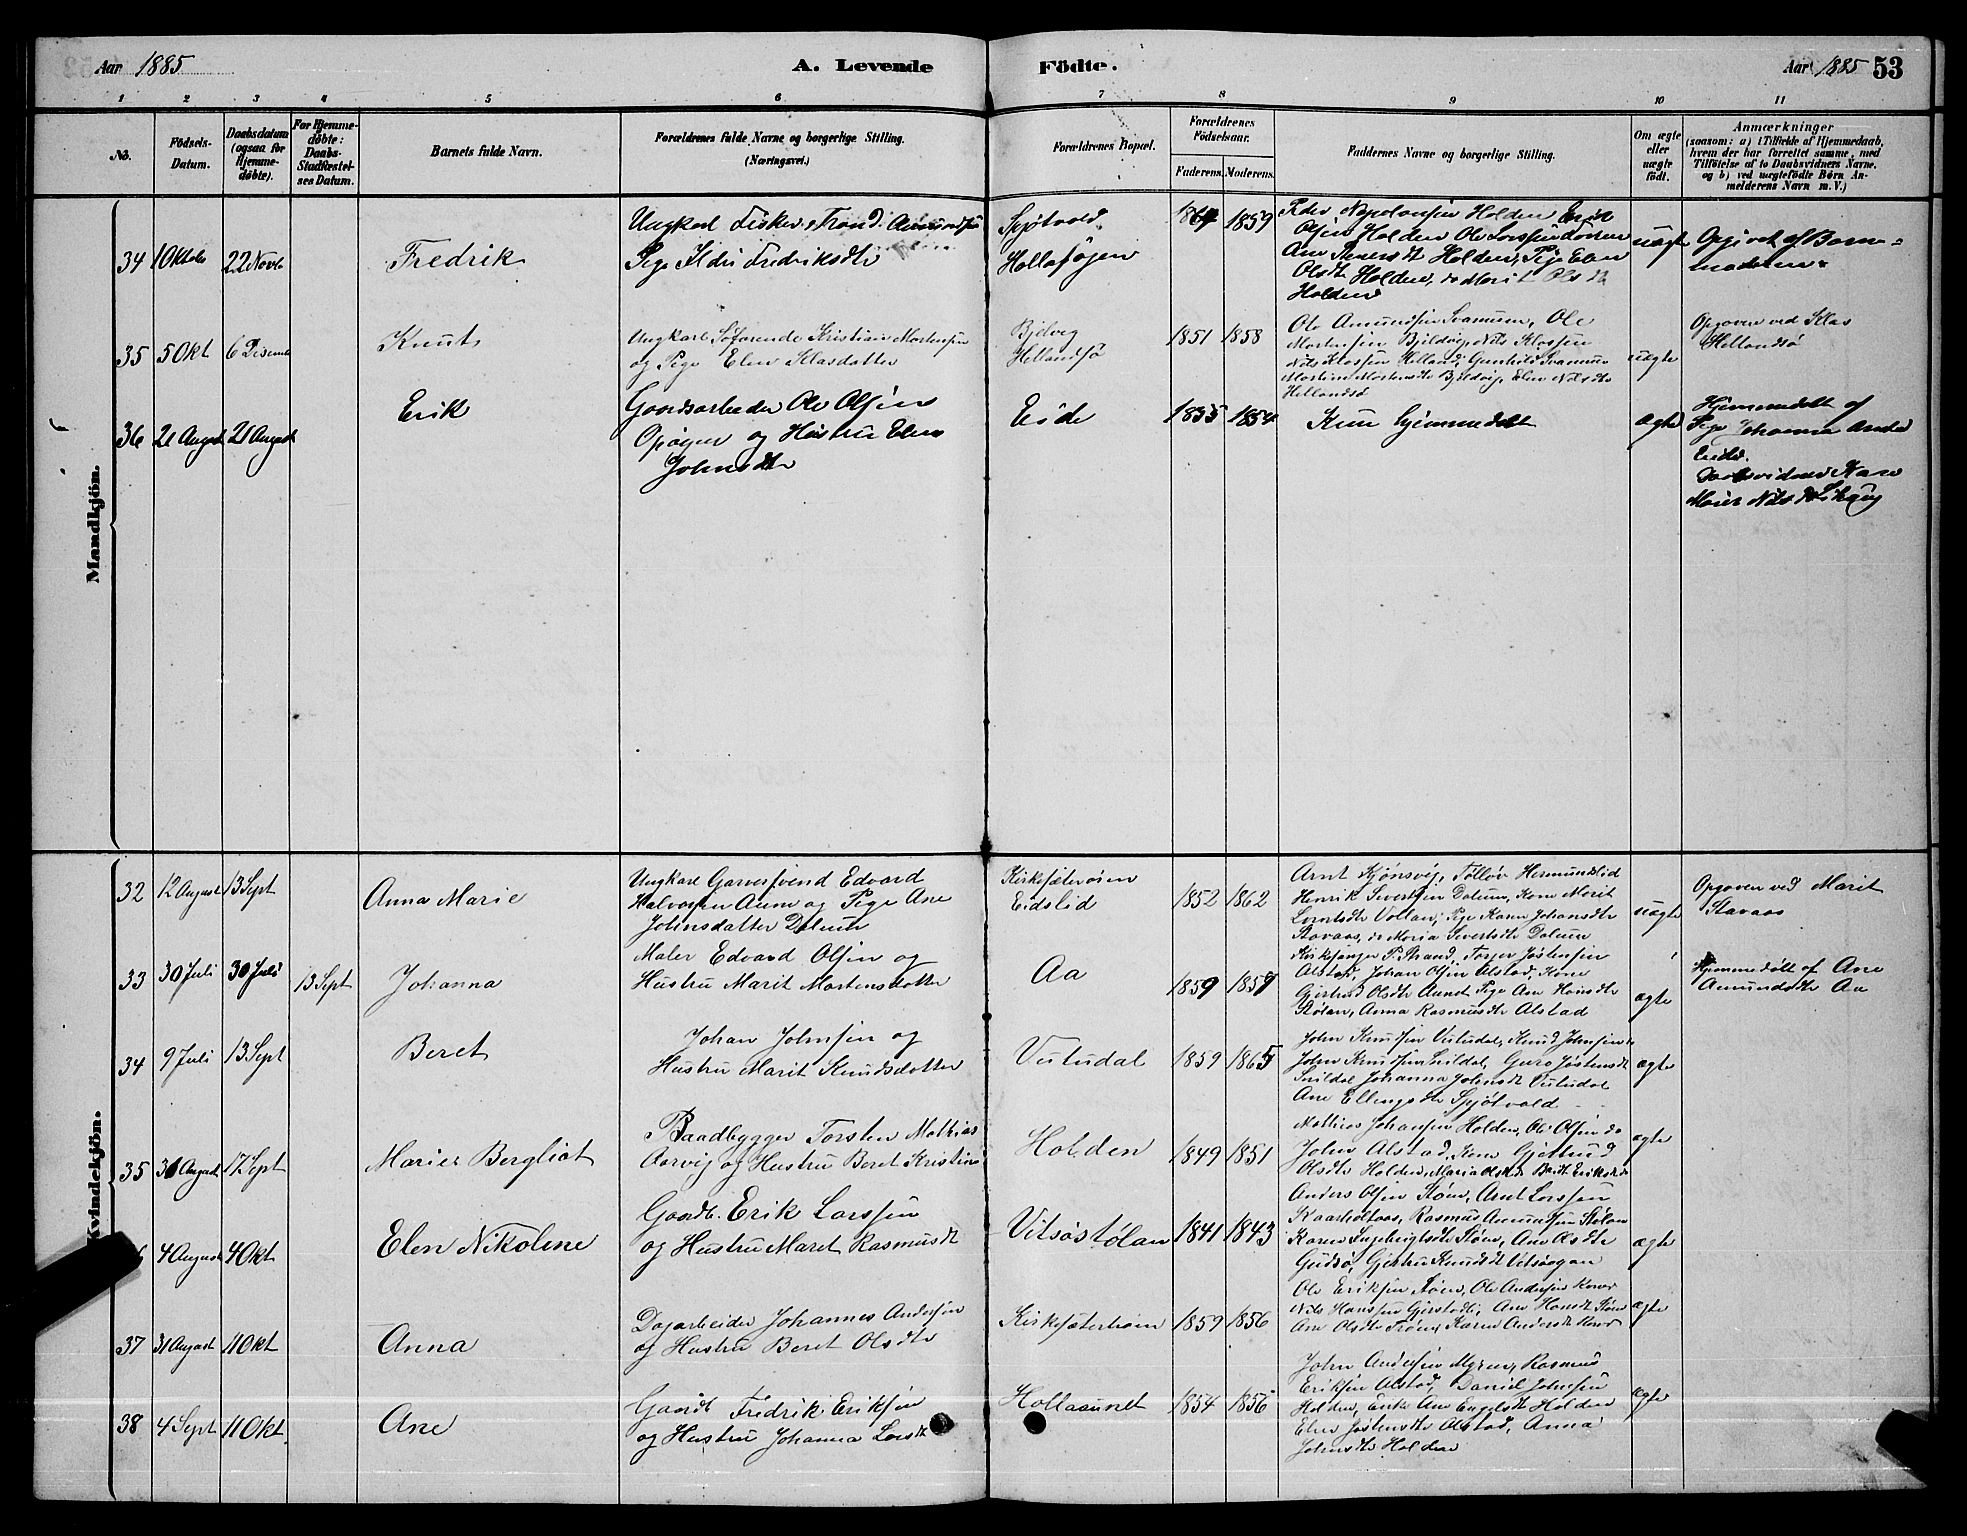 Aar 1885
A. Levende Födte.
Aar 1885 53
1 2 3 4 5 6 7 8 9 10 11
No.
Födsels-Datum.
Daabsdatum (ogsaa for Hjemme-döbte).
For Hjemme-döbte: Daabs-Stadfæstel-ses Datum.
Barnets fulde Navn.
Forældrenes fulde Navne og borgerlige Stilling. (Næringsvei.)
Forældrenes Bopæl.
Forældrenes Födselsaar.
Faderens. Moderens.
Faddernes Navne og borgerlige Stilling.
Om ægte eller uægte födt.
Anmærkninger
(saasom: a) i Tilfælde af Hjemmedaab,
hvem der har forrettet samme, med
Tilföielse af to Daabsvidners Navne.
og b) ved uægtefödte Börn An-
melderens Navn m. V.)
Mandkjön.
34 1 Oktober 22 Novb
Fredrik
Ungkarl Fisker
Pige Fredriksdtr
Spjøtvold
Hollasøjen
1859
Holden Erik
Olsen Holden Ole Larssen
Holden, Pige Elen
Olsdtr Holden, do Marit Olsdtr
Holden
uægte
Opgivet af Barne-
moderen
35 5 Okt 6 Desemb
Knut
Ungkarl Søfarende Kristian Mortensen
og Pige Elen Klasdatter
Hellandsø
1851 1858
Ole Amundsen Svanem, Ole
Mortensen
Nils Klassen Helland, Gunhild Svanem
Elen Nilsdtr
Hellandsø
uægte
Opgiven ved Klas
Hellandsø
36 21 August 21 August
Erik
Gaardsarbeider Ole Olsen
og Hustru Elen
Johnsdtr
Eide
1855 1854
Kun hjemmedøbt
ægte
Hjemmedøbt af
Pige Johanna
Eide.
Daabsvidner Kone
Nilsdtr
Kvindekjön.
32 12 August 13 Sept
Anna Marie
Ungkarl Garversvend Edvard
Halvorsen Aune og Pige Ane
Johnsdatter Dalum
Eidslid
1852 1862
Arnt
Henrik Sivertsen Dalum, Kone Marit
Vollan, Pige Karen Johansdtr
Stavaas, do Maria Sivertsdtr Dalum
uægte
Opgiven ved Marit
Stavaas
33 30 Juli 30 Juli 13 Sept
Johanna
Maler Edvard Olsen og
Hustru Marit Mortensdatter
Aa
1859 1859
Kirkesanger P. Strand,
Alstad, Johan Olsen Alstad, Kone
Gjertrud Olsdtr Pige Ane Hansdtr
Stølan, Anna Rasmusdtr Alstad
ægte
Hjemmedøbt af Ane
Amundsdtr Aa
34 9 Juli 13 Sept
Beret
Johan Johnsen og
Hustru Marit Knudsdatter
Vutudal
1859 1865
John Knudsen Vutudal, Knud Johnsen
John Knudsen Snildal, Guro Jøstensdtr
Snildal Johanna Johnsdt Vutudal
Ane Ellingsdtr Spjøtvold
ægte
35 31 August 17 Sept
Marie Bergliot
Baadbygger Torsten Mathias
Aarvig og Hustru Beret Kristine
Holden
1849 1851
Mathias Johansen Holden, Ole Olsen do
John Alstad, Kone Gjertrud
Olsdtr Holden, Maria Olsdtr Eriksdtr
ægte
4 August 4 Okt
Elen Nikoline
Gaardb. Erik Larssen
og Hustru Maret Rasmusdt
Vitsøstølan
1841 1843
Anders Olsen Støen, Arnt Larssen
Rasmus Amundsen Stølan
Karen Ingebrigtsdtr Støen, Ane Olsdtr
Gudsø, Gjertru Knudsdt
ægte
37 31 August 11 Okt
Anna
Dagarbeider Johannes Andersen
og Hustru Beret Olsdtr
1859 1856
Ole Eriksen Støen, Ole Andersen
Nils Hanssen Ane Hansdt Støen
Ane Olsdtr Karen Andersdt
ægte
38 4 Sept 11 Okt
Ane
Gaardb Fredrik Eriksen
og Hustru Johanna Larsdt
Hollasundet
1854 1856
John Andersen Myren, Rasmus
Eriksen Alstad, Daniel Johnsen
Holden, Enke Ane Engelsdt Holden
Elen Jøstensdtr Alstad, Anna
Johnsdtr Holden
ægte